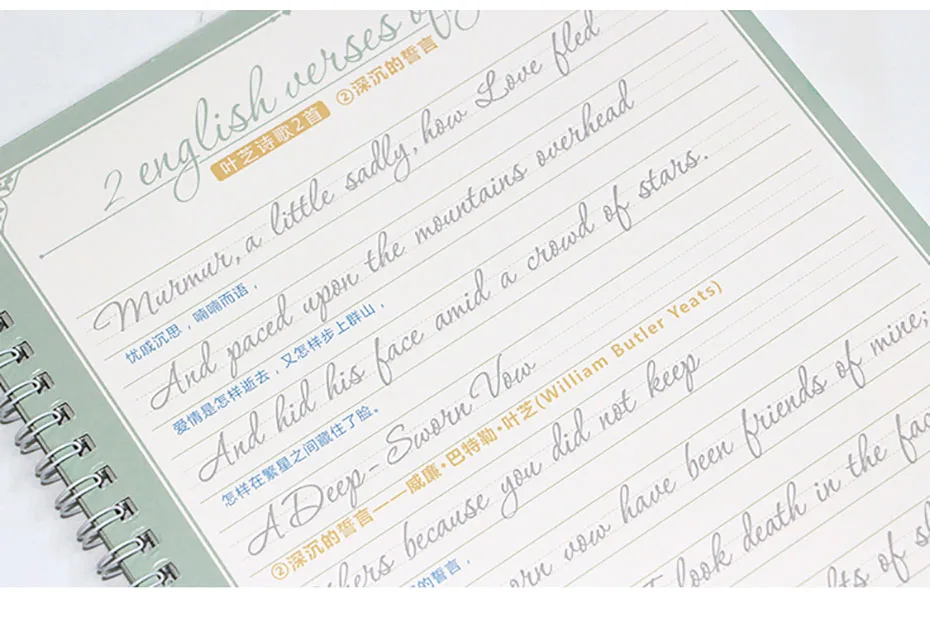 2 english verses of
叶芝诗歌2首 ②深沉的誓言
Murmur, a little sadly, how Love fled
忧戚沉思，喃喃而语，
And paced upon the mountains overhead
爱情是怎样逝去，又怎样步上群山，
And hid his face amid a crowd of stars.
怎样在繁星之间藏住了脸。
A Deep-Sworn Vow
②深沉的誓言——威廉·巴特勒·叶芝(William Butler Yeats)
thers because you did not keep
的誓言，
orn vow have been friends of mine;
look death in the fac
ts of sl